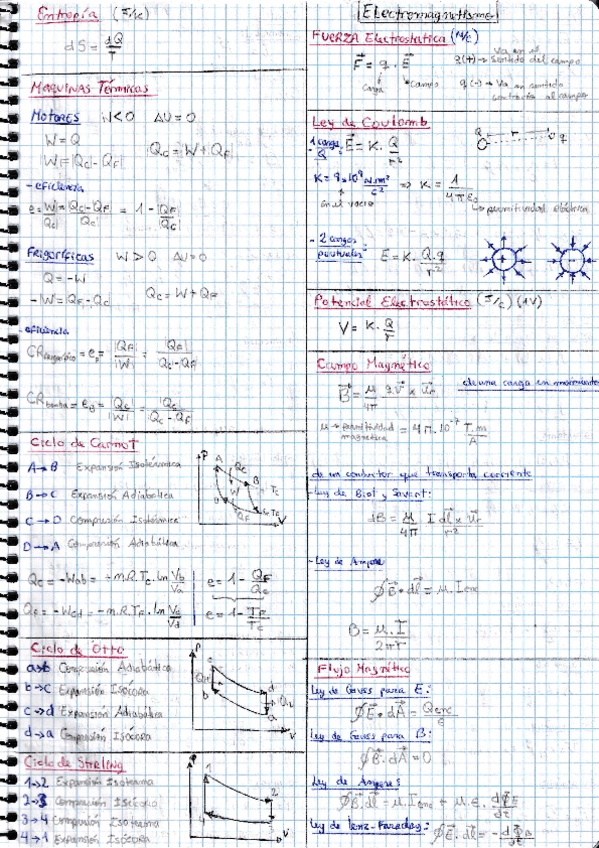 Entropía (J/K)
dS = dQ/T
MAQUINAS Térmicas
MOTORES W<0 ΔU=0
W=Q
W=|Qc|-|QF|
Qc=W+QF
- eficiencia
e=|W|/|Qc|=Qc-QF/Qc = 1-|QF|/|Qc|
Frigoríficas W>0 ΔU=0
Q=-W
-W=QF-Qc
Qc=W+QF
- eficiencia
= |QF|/|W| = |QF|/Qc-QF
= |Qc|/|W| = |Qc|/Qc-QF
Ciclo de Carnot
A→B Expansión Isotérmica
B→C Expansión Adiabática
C→D Compresión Isotérmica
D→A Compresión Adiabática
Qc=-Wab=-m.R.Tc.Ln Vb/Va
e=1-QF/Qc
QF=-Wcd=-m.R.TF.Ln Vc/Vd
e=1-TF/Tc
Ciclo de Otto
a→b Compresión Adiabática
b→c Expansión Isócora
c→d Expansión Adiabática
d→a Compresión Isócora
Ciclo de Stirling
1→2 Expansión Isoterma
2→3 Compresión Isócora
3→4 Compresión Isoterma
4→1 Expansión Isócora
Electromagnetismo
FUERZA Electrostatica (N/C)
F = q . E
carga
campo
q(+)→ Va en el sentido del campo
q(-)→ Va en sentido contrario al campo
Ley de Coulomb
1 carga E = K. Q/r²
K= 9x10⁹ N.m²/C² ⇒ K= 1/4πε₀
en el vacío
permitividad eléctrica
- 2 cargas puntuales: E=K. Q.q/r²
Potencial Electrostático (J/C) (1V)
V= K. Q/r
Campo Magnético
B= μ/4π q.v x ur
de una carga en movimiento
μ→ permitividad magnetica = 4π.10⁻⁷ T.m/A
de un conductor que transporta corriente
- Ley de Biot y Savart:
dB= μ/4π I dl x ur/r²
- Ley de Ampere
∮B•dl = μ.Ienc
B= μ.I/2πr
Flujo Magnético
Ley de Gauss para E:
∮E.dA= Qenc/ε
Ley de Gauss para B:
∮B.dA=0
Ley de Ampere
∮B.dl= μ.Ienc + μ.ε. dΦE/dt
Ley de lenz-Faraday: ∮E.dl= -dΦB/dt